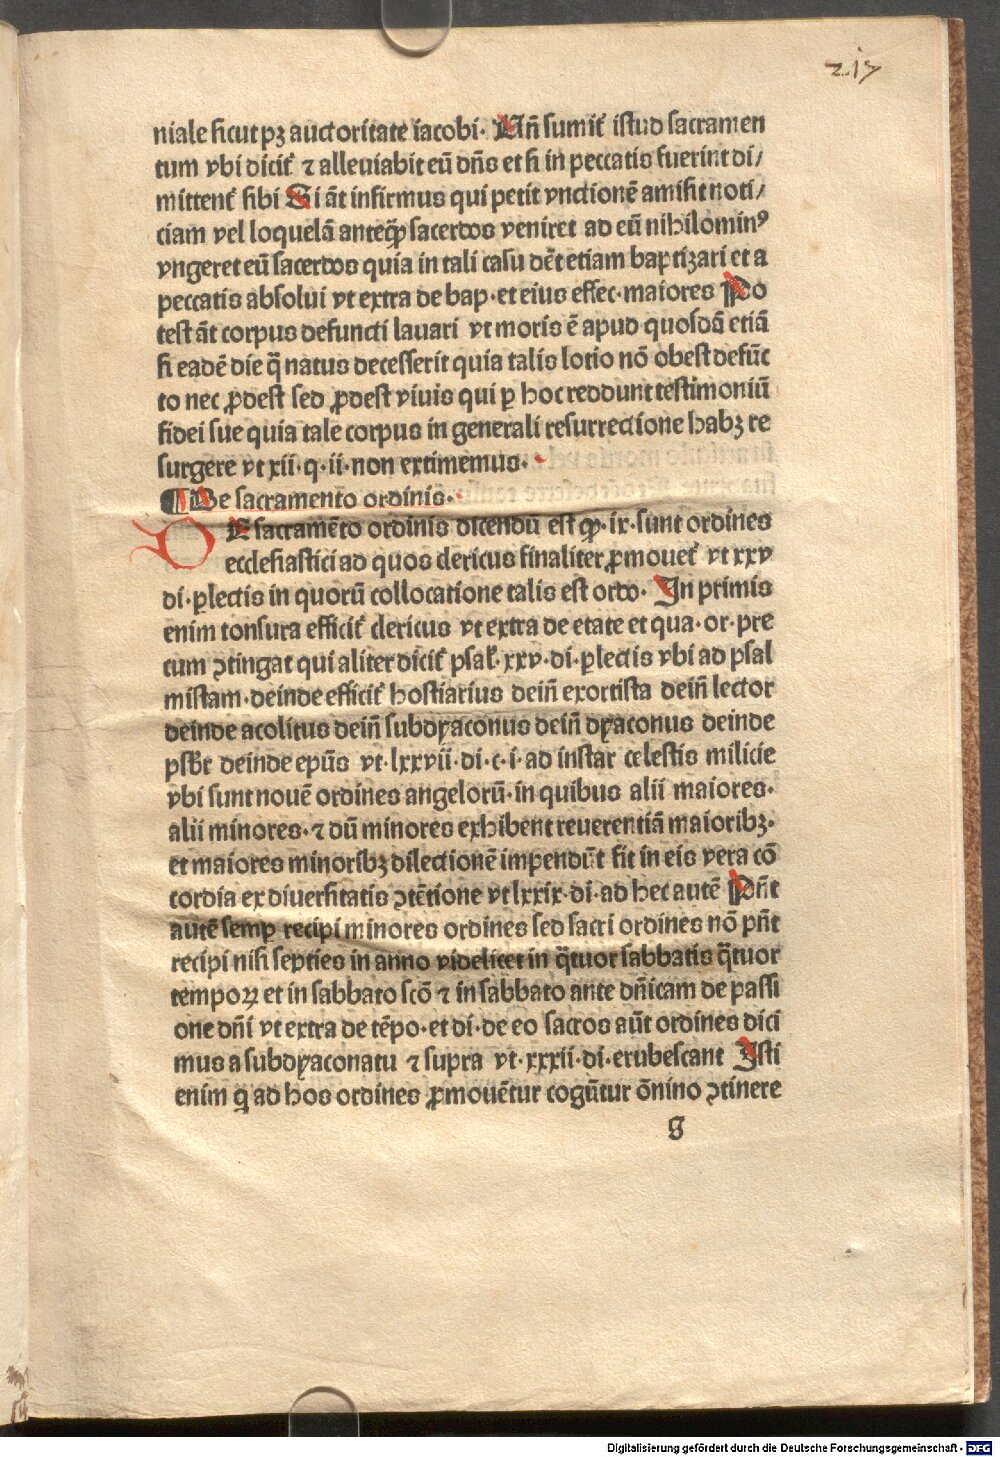 217
niale sicut pꝫ auctoritate iacobi· Uñ sumit᷑ istud sacramen
tum vbi dicit᷑ ⁊ alleuiabit eū dñs et si in peccatis fuerint di/
mittent᷑ sibi Si āt infirmus qui petit vnctionē amisit noti/
ciam vel loquelā anteqꝫ̄ sacerdos veniret ad eū nihilominꝰ
vngeret eū sacerdos quia in tali casu dēt etiam baptizari et a
peccatis absolui vt extra de bap·et eius effec·maiores Po
test āt corpus defuncti lauari vt moris ē apud quosdā etiā
si eadē die q̄ natus decesserit quia talis lotio nō obest defūc
to nec ꝓdest sed ꝓdest viuis qui ꝑ hoc reddunt testimoniū
fidei sue quia tale corpus in generali resurrectione habꝫ re
surgere vt xii·q·ii·non extimemus·
¶ De sacramento ordinis·
DE sacramēto ordinis dicendū est ꝙ·ix·sunt ordines
ecclesiastici ad quos clericus finaliter ꝓmouet᷑ vt xxv
di·ꝑlectis in quorū collocatione talis est ordo· In primis
enim tonsura efficit᷑ clericus vt extra de etate et qua·or·pre
cum ꝯtingat qui aliter dicit᷑ psal᷑·xxv·di·ꝑlectis vbi ad psal
mistam·deinde efficit᷑ hostiarius deiñ exortista deiñ lector
deinde acolitus deiñ subdyaconus deiñ dyaconus deinde
psbr̄ deinde epūs vt·lxxvii·di·c·i·ad instar celestis milicie
vbi sunt nouē ordines angelorū·in quibus alii maiores·
alii minores·⁊ dū minores exhibent reuerentiā maioribꝫ·
et maiores minoribꝫ dilectionē impendūt fit in eis vera cō
cordia ex diuersitatis ꝯtētione vt lxxix·di·ad hec autē Pñt
autē semꝑ recipi minores ordines sed sacri ordines nō pñt
recipi nisi septies in anno videlicet in q̄tuor sabbatis q̄tuor
tempoꝝ et in sabbato scō ⁊ in sabbato ante dñicam de passi
one dñi vt extra de tēpo·et di·de eo sacros aūt ordines dici
mus a subdyaconatu ⁊ supra vt·xxxii·di·erubescant Isti
enim q̇ ad hos ordines ꝓmouētur cogūtur ōnino ꝯtinere
g
Digitalisierung gefördert durch die Deutsche Forschungsgemeinschaft - DFG